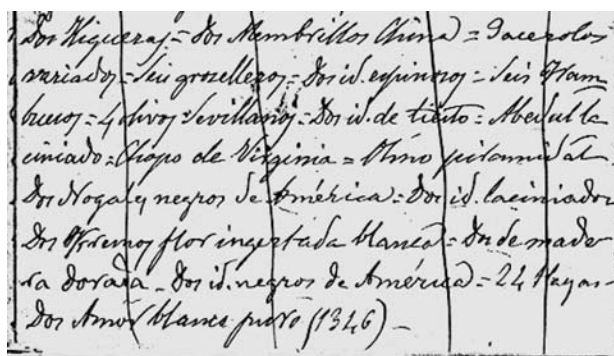 Dos Higueras = Dos Membrillos China = 3 acerolos
variados = Seis groselleros = Dos id. espinosos = Seis Fram
buesos = 4 olivos Sevillanos = Dos id. de = Abedul la
ciniado = Chopo de Virginia = Olmo piramidal
Dos Nogales negros de América = Dos id. laciniados
Dos flor ingertada blanca = Dos de made
ra dorada = Dos id. negros de América = 24 Hayas =
Dos Amor blanco puro (1346) =